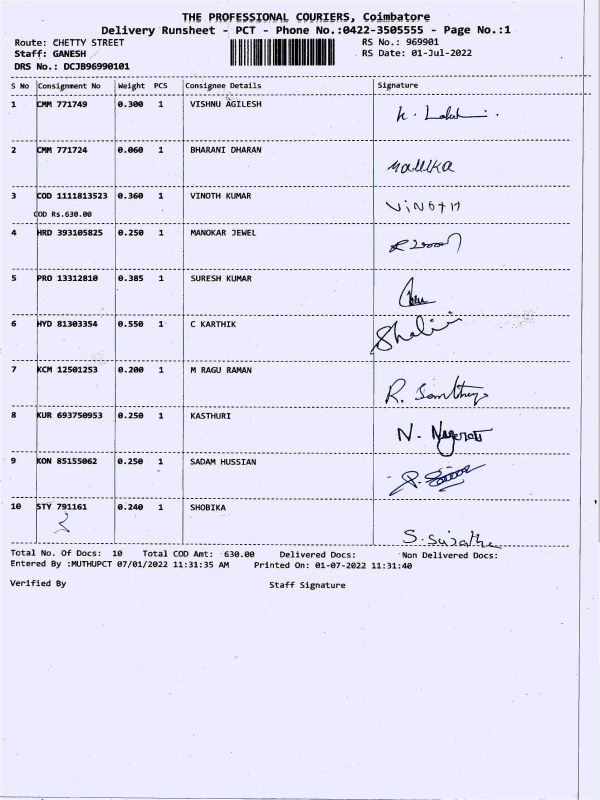 THE PROFESSIONAL COURIERS, Coimbatore
Delivery Runsheet - PCT - Phone No.:0422-3505555 - Page No.:1
Route: CHETTY STREET RS No.: 969901
Staff: GANESH RS Date: 01-Jul-2022
DRS No.: DCJB96990101
S No Consignment No Weight PCS Consignee Details Signature
1 CMM 771749 0.300 1 VISHNU AGILESH
2 CMM 771724 0.060 1 BHARANI DHARAN Mallika
3 COD 1111813523 0.360 1 VINOTH KUMAR ViNOTH
COD Rs.630.00
4 HRD 393105825 0.250 1 MANOKAR JEWEL
5 PRO 13312810 0.385 1 SURESH KUMAR
6 HYD 81303354 0.550 1 C KARTHIK Shalini
7 KCM 12501253 0.200 1 M RAGU RAMAN R.
8 KUR 693750953 0.250 1 KASTHURI N.
9 KON 85155062 0.250 1 SADAM HUSSIAN
10 STY 791161 0.240 1 SHOBIKA S.
Total No. Of Docs: 10 Total COD Amt: 630.00 Delivered Docs: Non Delivered Docs:
Entered By :MUTHUPCT 07/01/2022 11:31:35 AM Printed On: 01-07-2022 11:31:40
Verified By Staff Signature